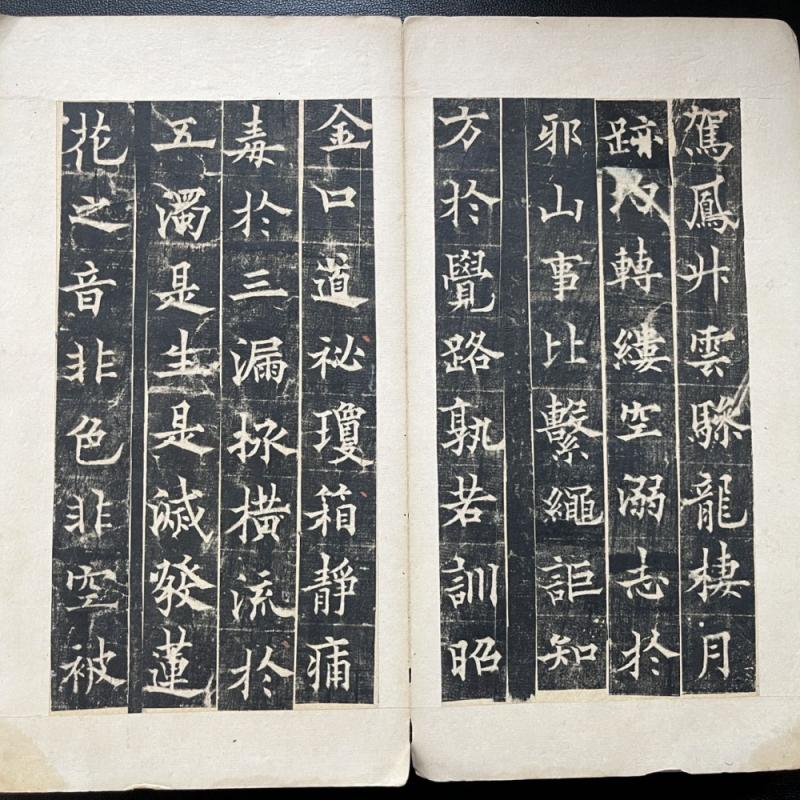 駕鳳升雲驂龍棲月
跡轉縷空溺志於
邪山事比繫繩詎知
方於覺路孰若訓昭
金口道祕瓊箱靜痛
毒於三漏拯橫流於
五濁是生是滅發蓮
花之音非色非空被